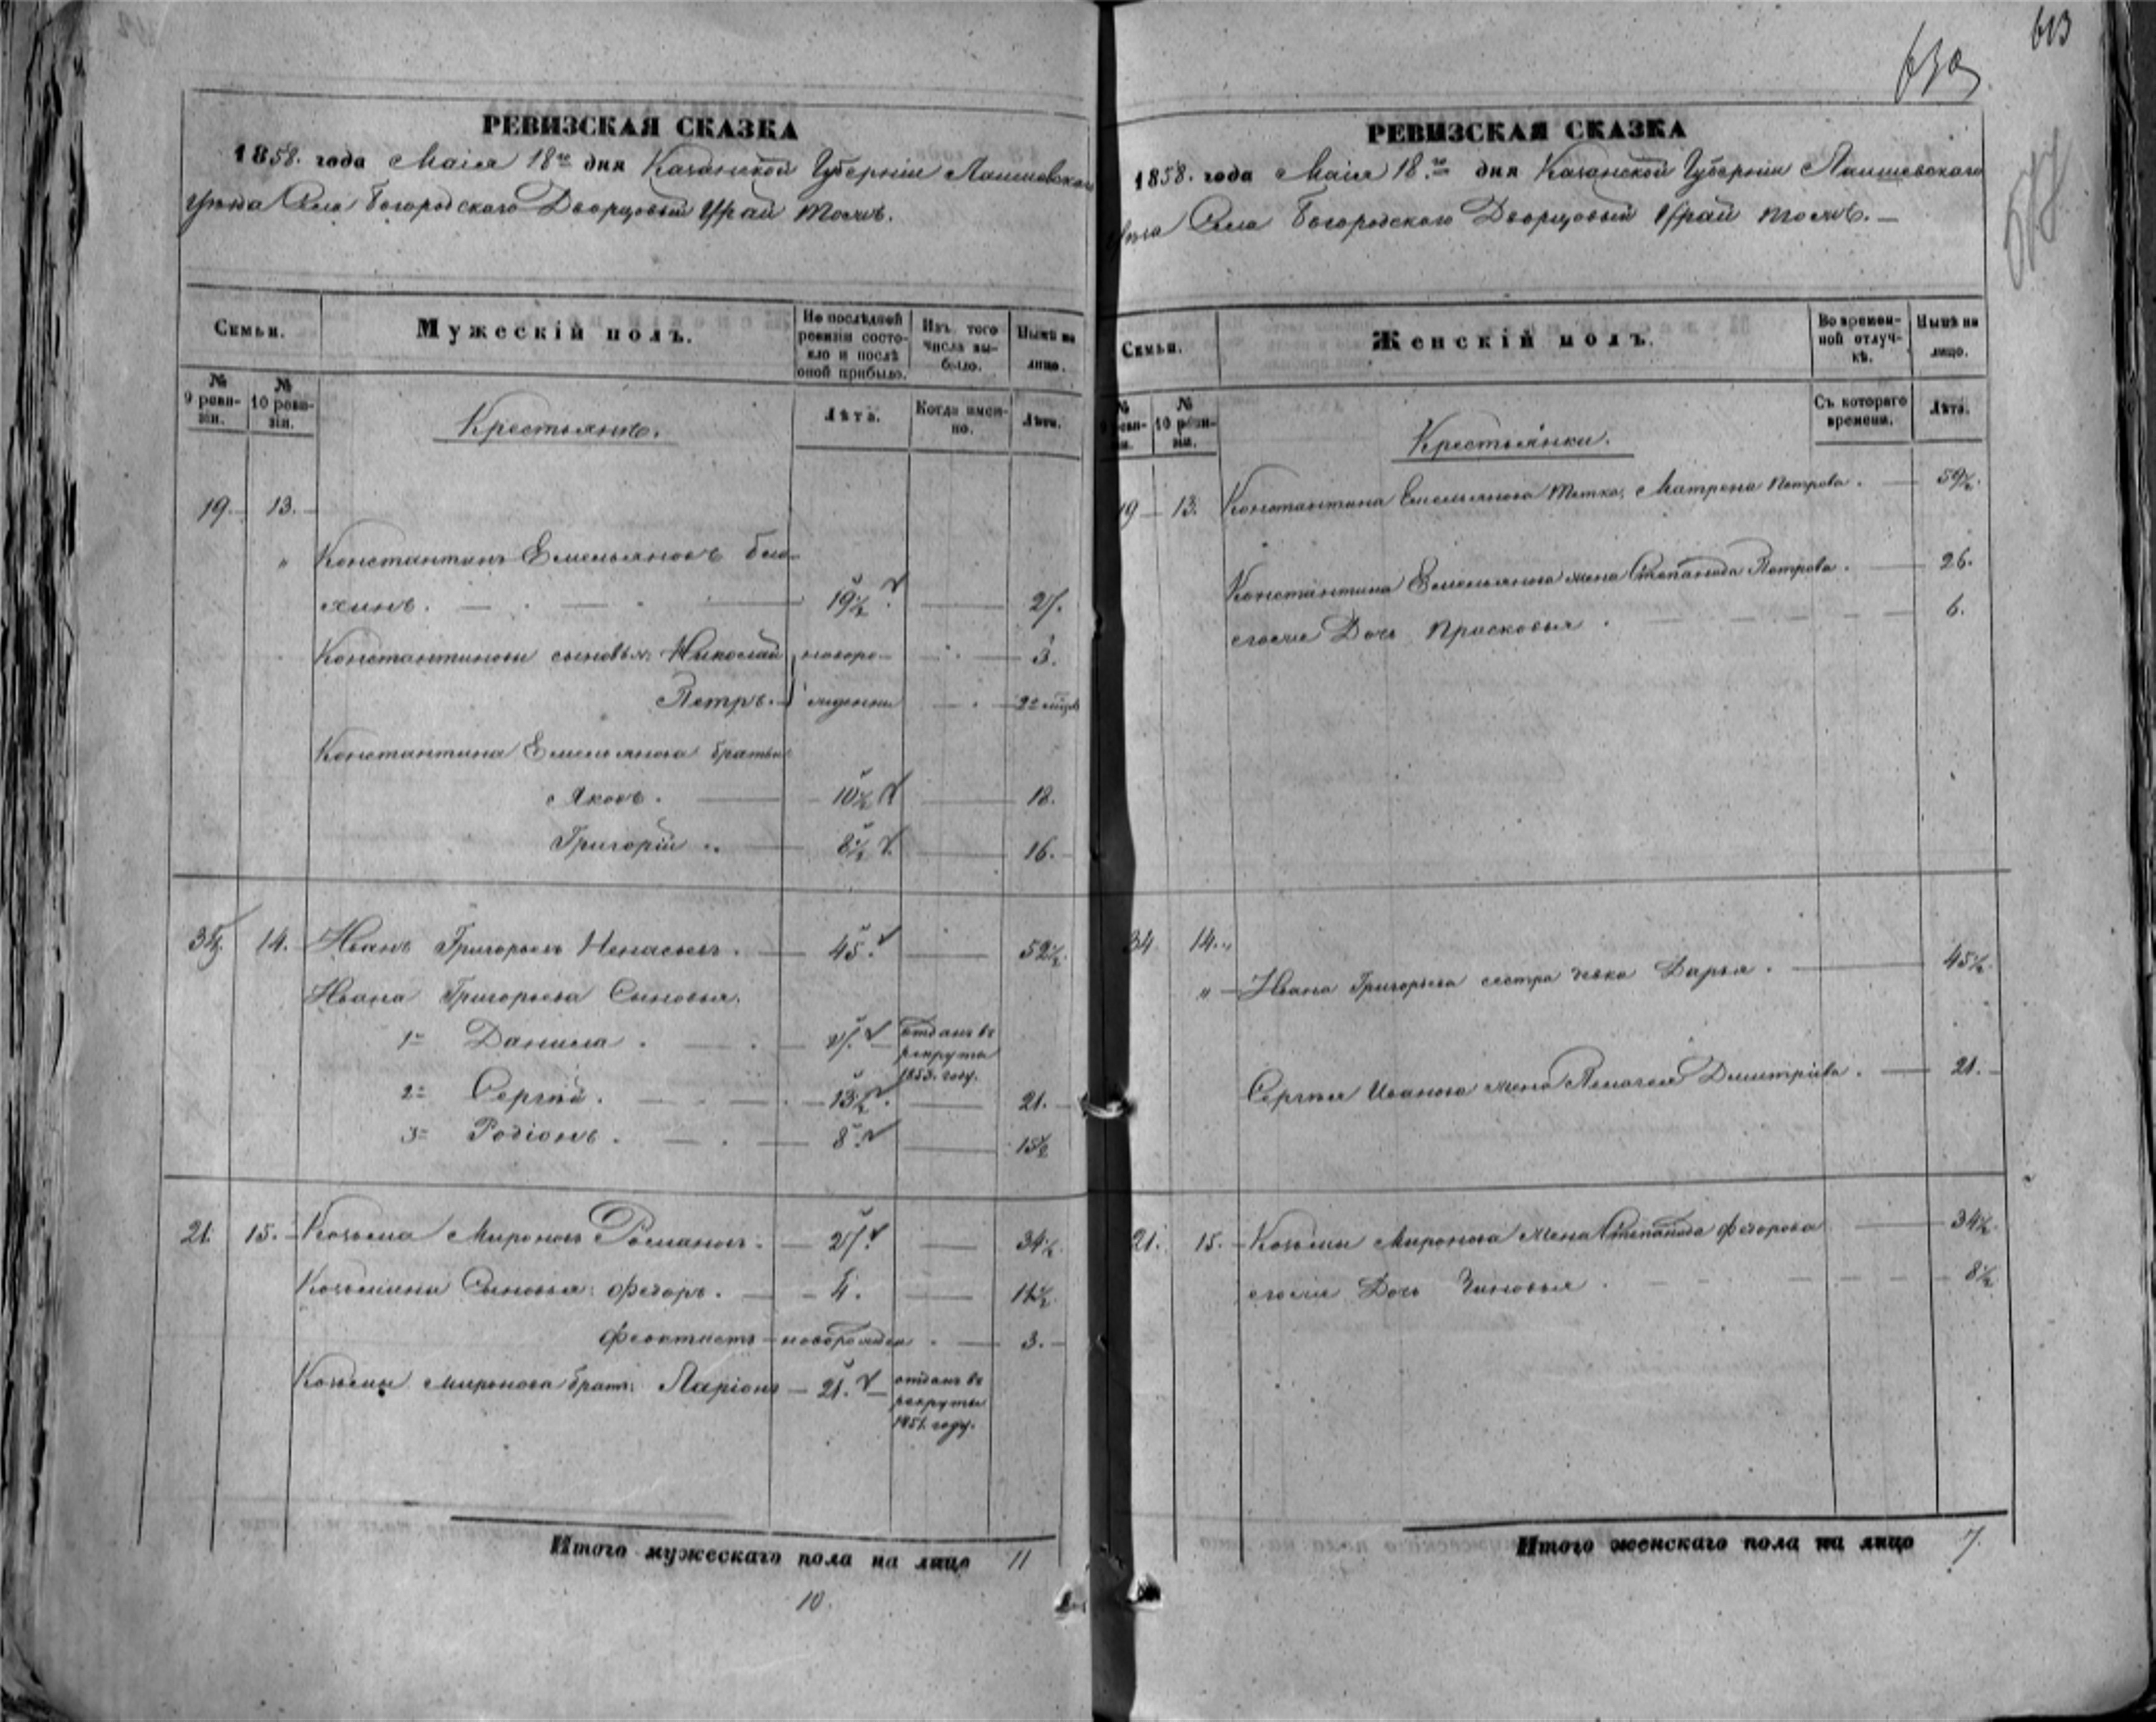 613
630
РЕВИЗСКАЯ СКАЗКА
1858. года Маія 18го дня Казанской Губерніи Лаишевскаго
Уѣзда Села Богородскаго Дворцовый Урай тожъ.
Семьи.
Мужескій полъ.
По послѣдней ревизіи состояло и послѣ оной прибыло.
Изъ того числа выбыло.
Нынѣ на лицо.
№ 9 ревизіи.
№ 10 ревизіи.
Крестьяне.
Лѣта.
Когда именно.
Лѣта.
19. 13.
" Константинъ Емельяновъ
19½. 27.
Константиновы сыновья: Николай новоро- 3.
Петръ. жденны 2х
Константина Емельянова братья
Яковъ. 10½ 18.
Григорій 8½ 16.
34. 14. Иванъ Григорьевъ Ненасьевъ. 45. 52½.
Ивана Григорьева Сыновья.
1й Данила. отданъ въ
рекруты
1853. году.
2й Сергѣй. 13½. 21.
3й Родіонъ. 8. 15½
21. 15. Козьма Мироновъ Романовъ. 27. 34½.
Козьмины Сыновья: Федоръ. 4. 11½.
Феоктистъ новорожден 3.
Козьмы Миронова братъ: Ларіонъ 21. отданъ въ
рекруты
1851. году.
Итого мужескаго пола на лицо 11
10.
РЕВИЗСКАЯ СКАЗКА
1858. года Маія 18го дня Казанской Губерніи Лаишевскаго
Села Богородскаго Дворцовый Урай тожъ.
Семьи.
Женскій полъ.
Во временной отлучкѣ.
Нынѣ на лицо.
№ 10 ревизіи.
Крестьянки.
Съ котораго времени.
Лѣта.
19 13. Константина Емельянова тетка, Матрена Петрова. 59½.
Константина Емельянова жена Степанида Петрова. 26.
егоже Дочь Прасковья 6.
34 14.
" Ивана Григорьева сестра девка Дарья. 45½.
Сергѣя Иванова жена Пелагея Димитріева. 21.
21. 15. Козьмы Миронова жена Степанида Федорова 34½.
егоже Дочь Зиновья. 8½
Итого женскаго пола на лицо 7.